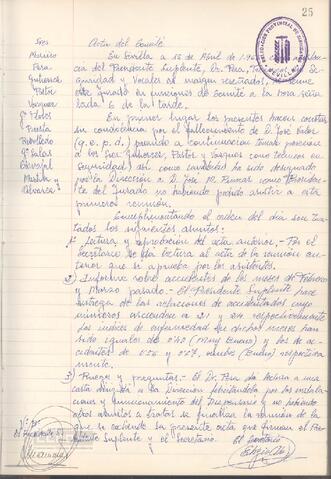 25
Acta del Comité
Sres
En Sevilla a 15 de Abril de
cia del Presidente Suplente, Dr. Pera,
guridad y Vocales al margen reseñados, se reune
este Jurado en funciones de Comité a la hora seña
lada 6 de la tarde.
Pera
Gutierrez
Pastor
Vazquez
Gº Flores
Puerta
Rebolledo
Gº Salas
Carvajal
Martin y
Alvarez
En primer lugar los presentes hacen constar
su condolencia por el fallecimiento de D. José
(q.e.p.d.) pasando a continuación tomar posesión
a los Sres Gutierrez, Pastor y Vazquez como técnicos en
seguridad, así como también ha sido designado
por la Dirección a D. José como Presiden
te del Jurado no habiendo podido asistir a esta
primera reunión.
Cumplimentando el orden del día son tra
tados los siguientes asuntos:
1º Lectura y aprobación del acta anterior. - Por el
Secretario se da lectura al acta de la reunión an
terior que se aprueba por los asistentes.
2) Informe sobre accidentes de los meses de Febrero
y Marzo pasado. - El Presidente Suplente hace
entrega de las relaciones de accidentados cuyo
números ascienden a 21 y 24 respectivamente
Los indices de enfermedad en dichos meses han
sido iguales de 0'40 (Muy bueno) y los de ac
cidentes de y 0'27, ambos (bueno) respectiva
mente.
3) Ruegos y preguntas. - El Dr. Pera da lectura a una
carta dirigida a la Dirección felicitándola por las instalacio
nes y funcionamiento del Dispensario y no habiendo
otros asuntos a tratar se finaliza la reunión de la
que se extiende la presente acta que firman el Pre
sidente Suplente y el Secretario.
Vº Bº
El Secretario